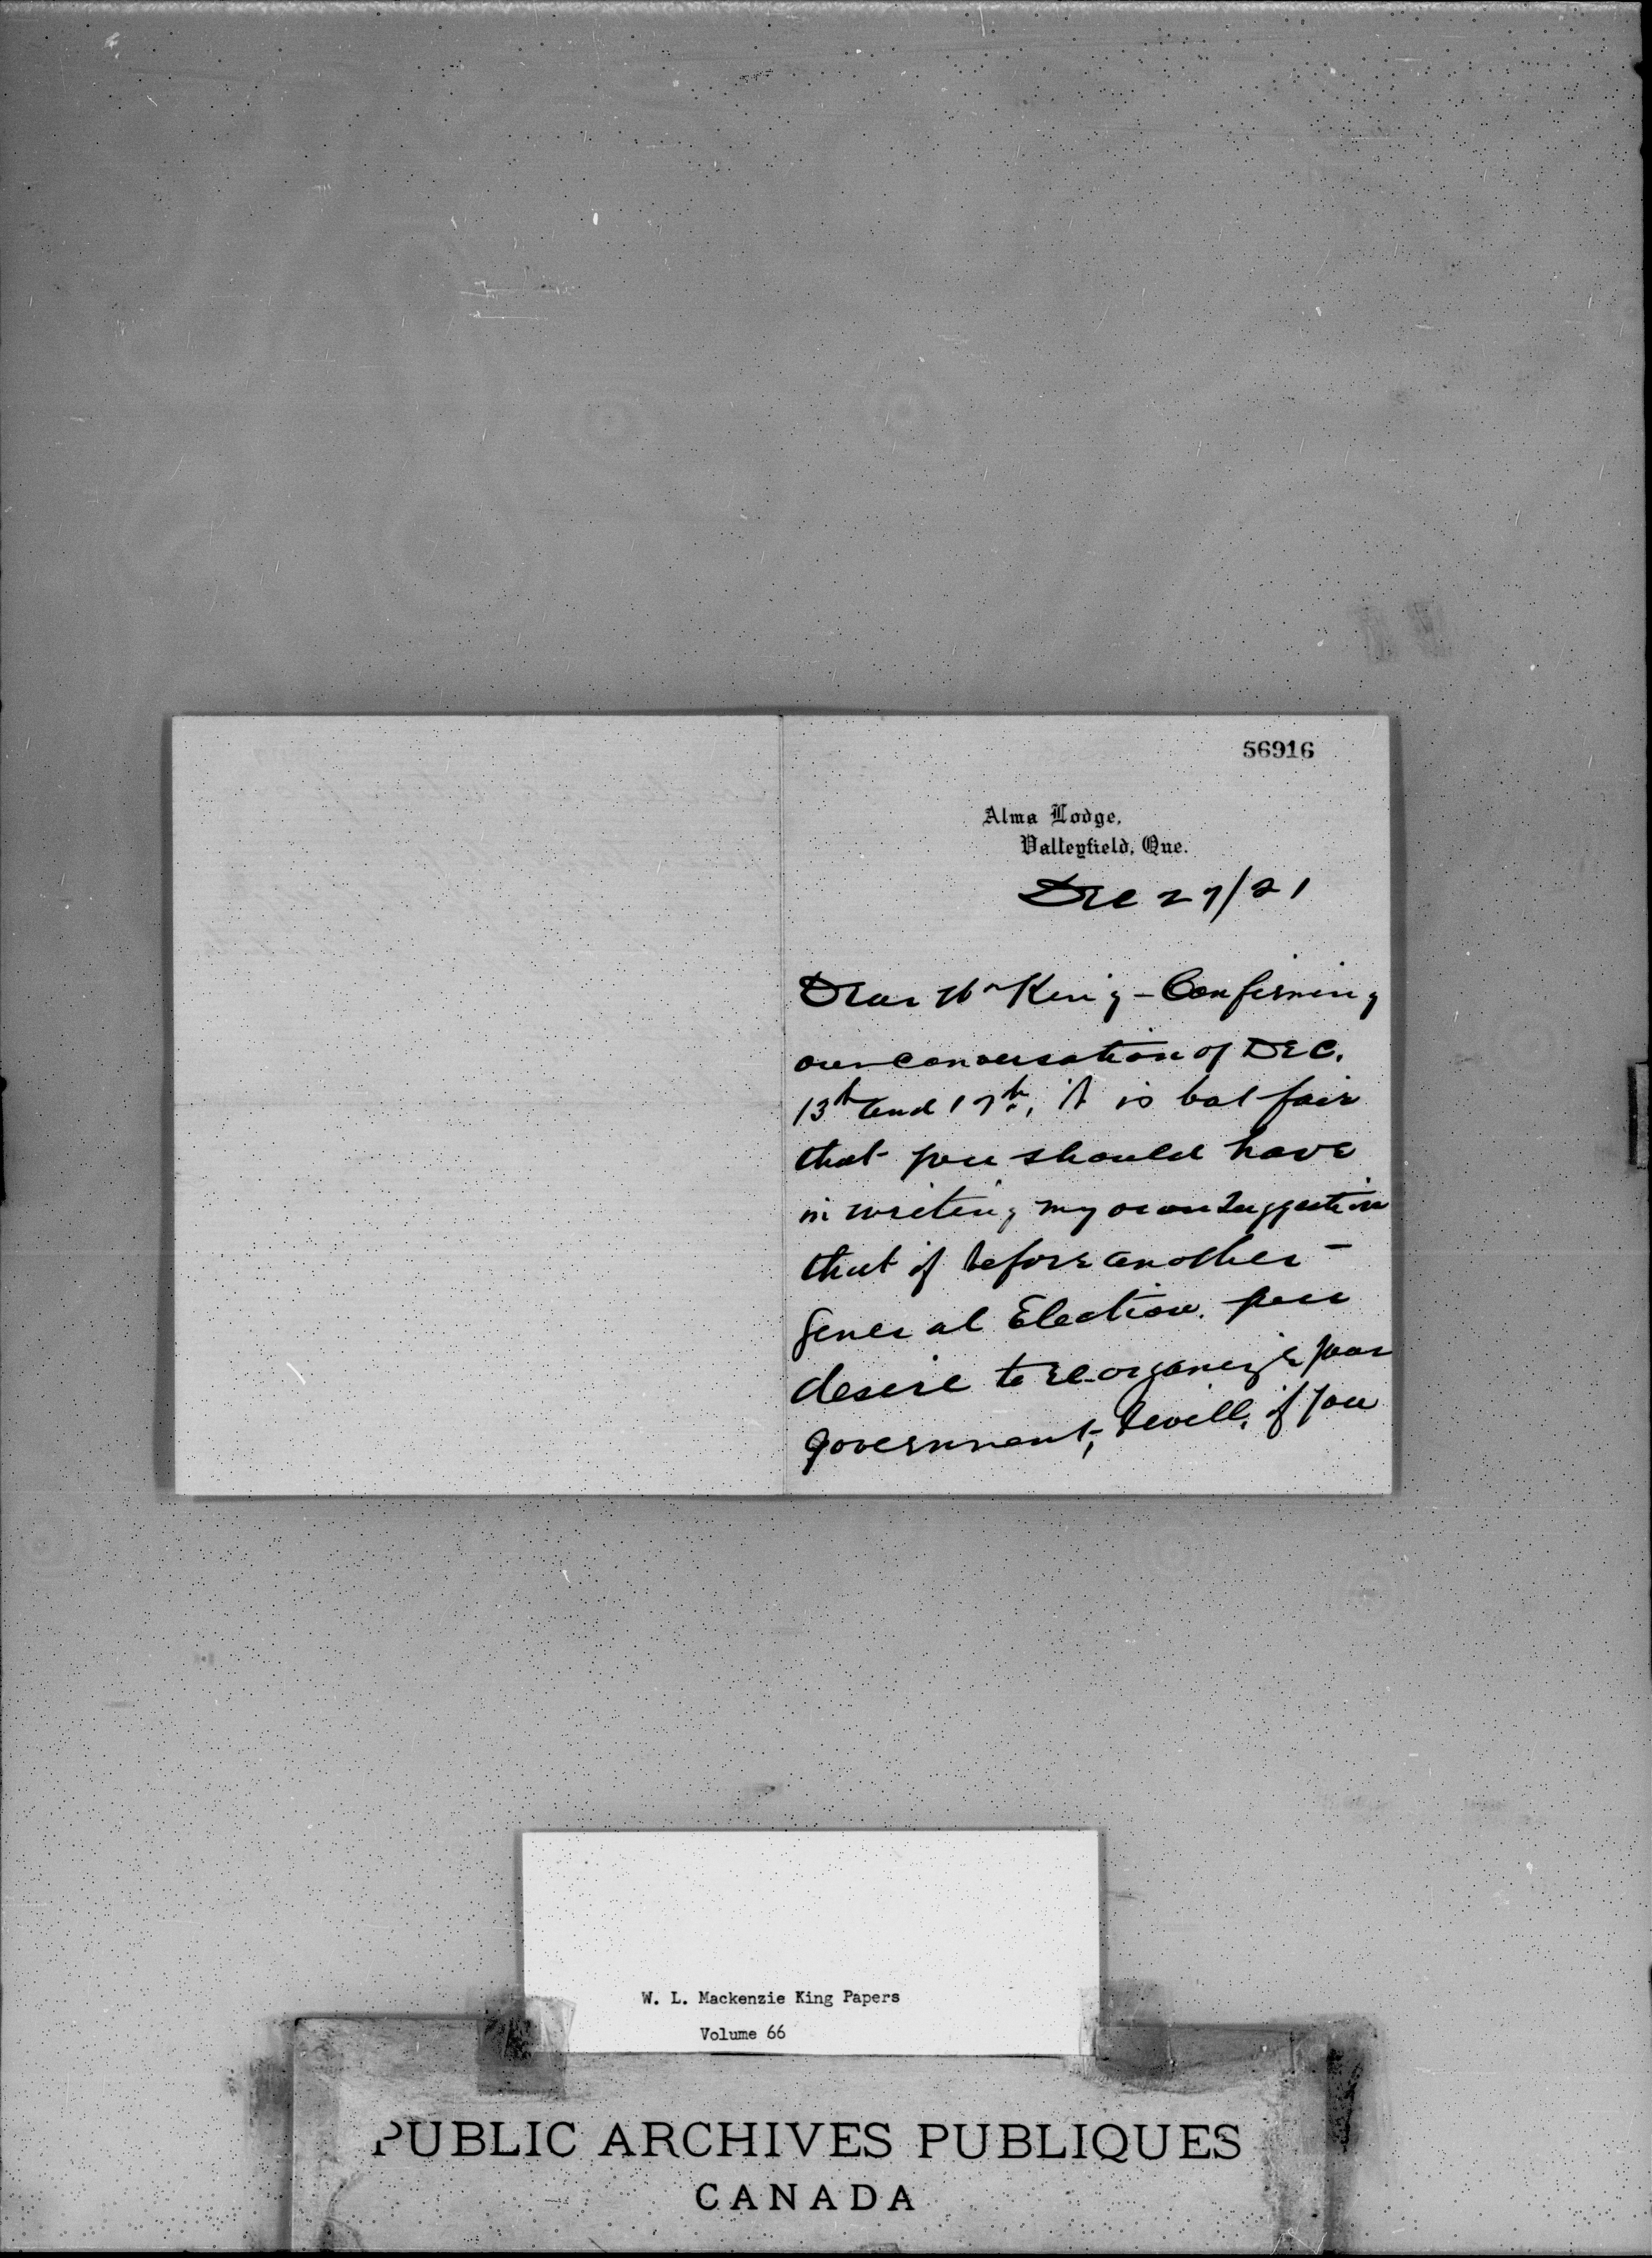 56916
Alma Lodge,
Valleyfield, Que.
Dec 27/21
Dear Mr King - Confirming
our conversation of DEC.
13th and 17th, it is but fair
that you should have
in writing my own suggestion
that if before another
General Election you
desire to re-organize your
government, I will, if you
W. L. Mackenzie King Papers
Volume 66
PUBLIC ARCHIVES PUBLIQUES
CANADA